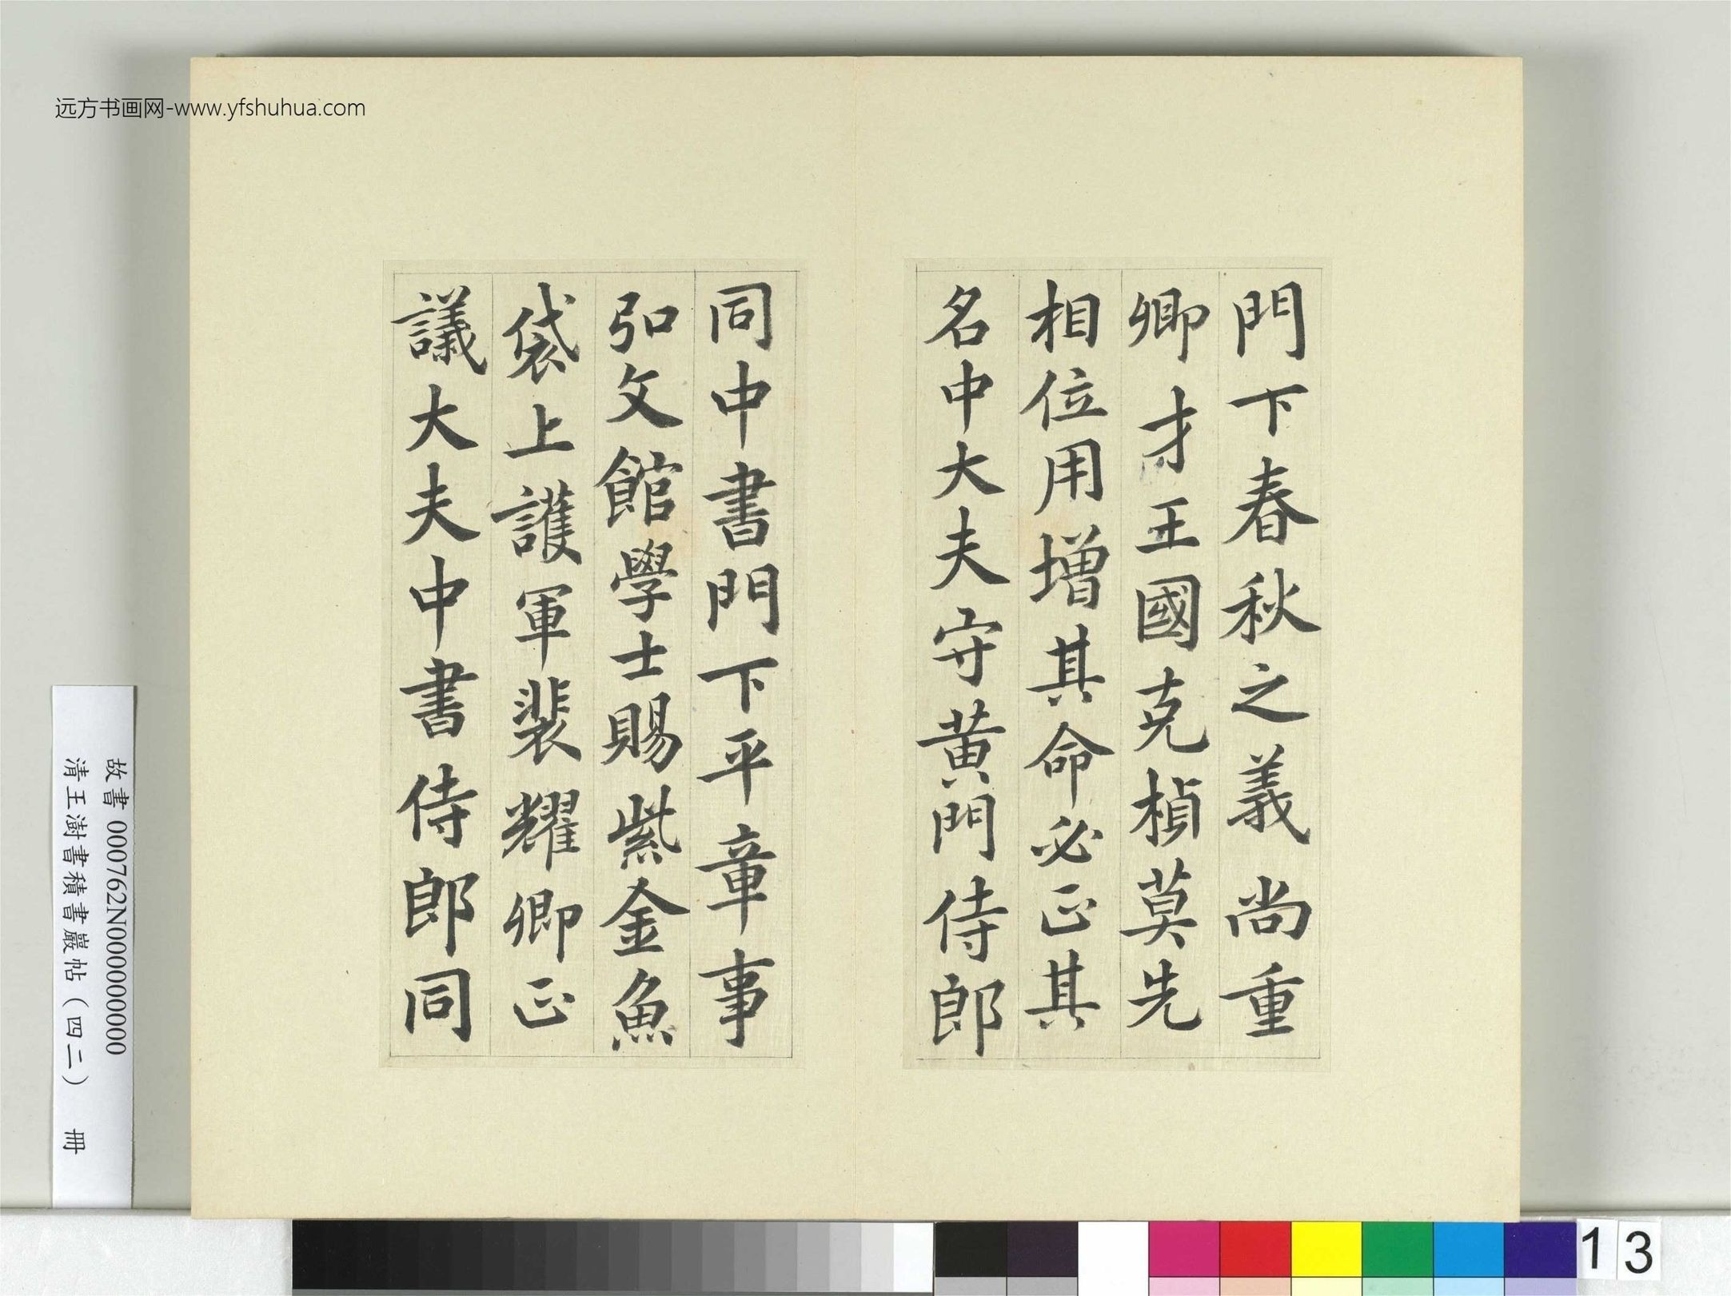 远方书画网-www.yfshuhua.com
門下春秋之義尚重
卿才王國克楨莫先
相位用增其命必正其
名中大夫守黄門侍郎
同中書門下平章事
弘文館學士賜紫金魚
袋上護軍裴耀卿正
議大夫中書侍郎同
故書 000762N000000000
清王澍書積書巖帖（四二） 冊
13